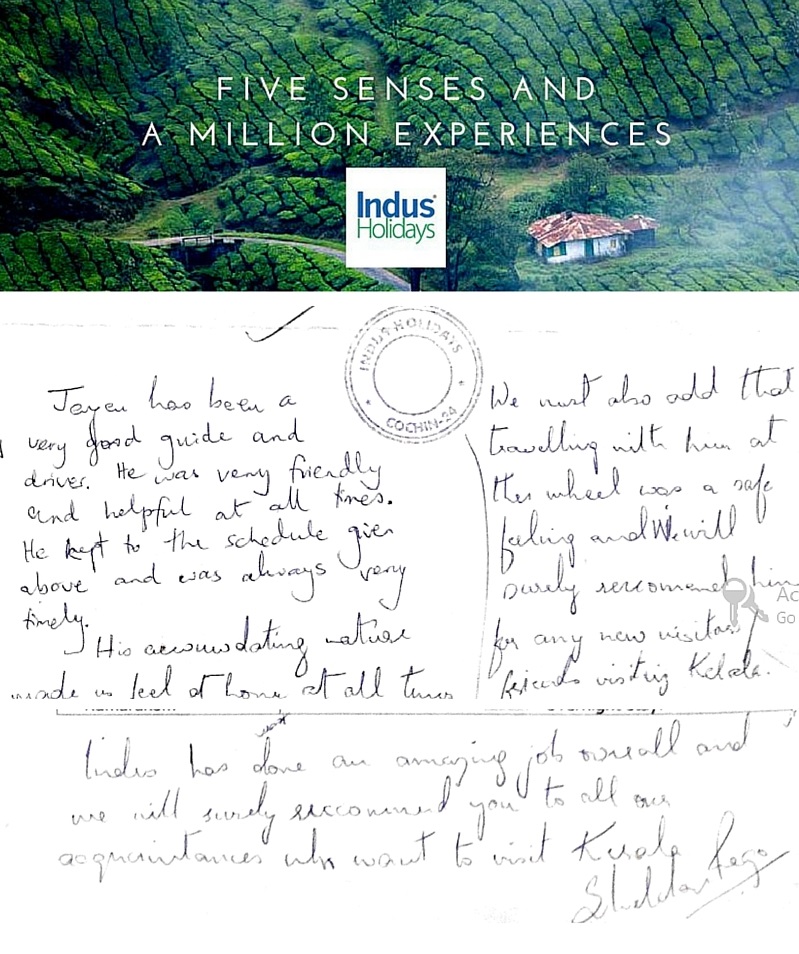 FIVE SENSES AND
A MILLION EXPERIENCES
Indus
Holidays
INDUS HOLIDAYS
* COCHIN-24 *
Jeyen has been a
very good guide and
driver. He was very friendly
and helpful at all times.
He kept to the schedule given
above and was always very
timely.
His accumodating nature
made us feel at home at all times
We must also add that
travelling with him at
the wheel was a safe
feeling and We will
surely reccomend him
for any new visitors/
friends visiting Kerala.
Indus has done an amazing job overall and
we will surely reccommend you to all our
acquaintances who want to visit Kerala
Ac
Go